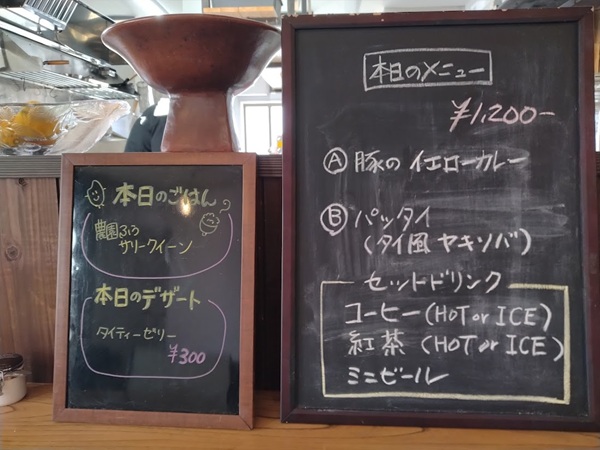 本日のごはん
農園るふう
サリークイーン
本日のデザート
タイティーゼリー
¥300
本日のメニュー
¥1,200-
Ⓐ 豚の イエローカレー
Ⓑ パッタイ
(タイ風 ヤキソバ)
セットドリンク
コーヒー (HOT or ICE)
紅茶 (HOT or ICE)
ミニビール